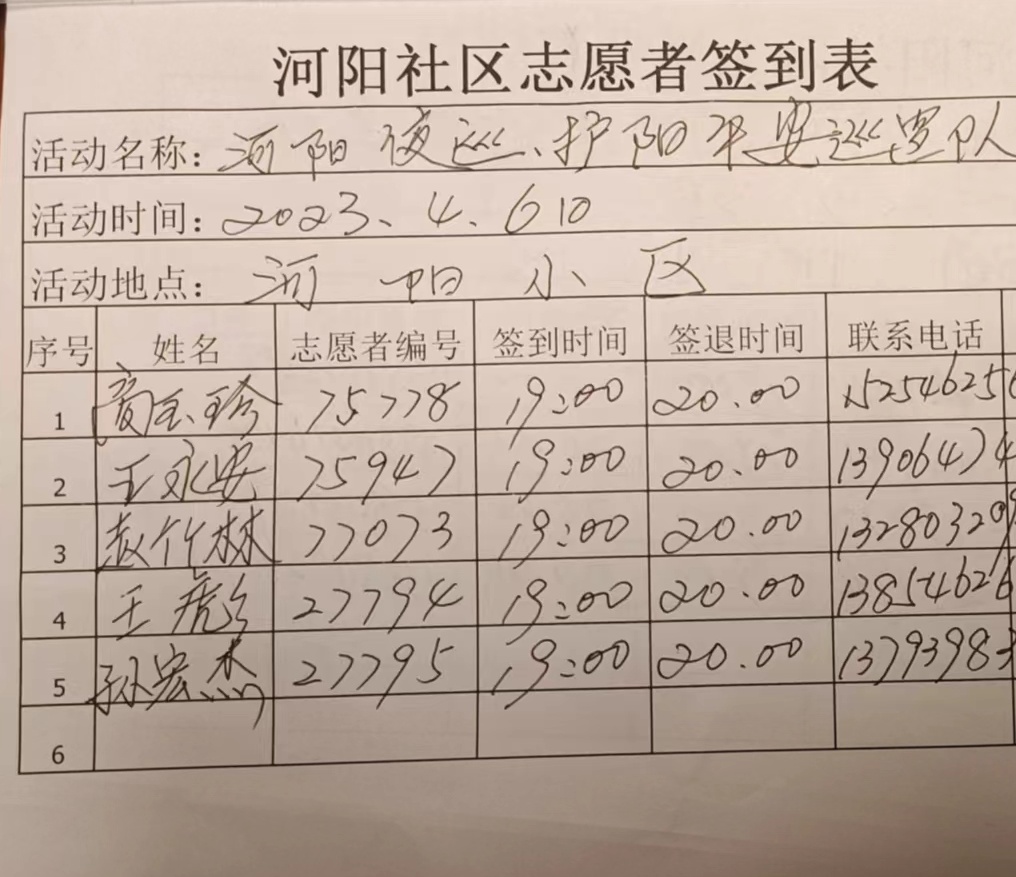 河阳社区志愿者签到表
活动名称: 河阳夜巡、护阳平安巡逻队
活动时间: 2023、4、6 10
活动地点: 河阳小区
序号 姓名 志愿者编号 签到时间 签退时间 联系电话
1 玉珍 75778 19:00 20.00 152546256
2 王永安 75947 19:00 20.00 13906474
3 赵竹林 77073 19:00 20.00 132803299
4 王虎 27794 19:00 20.00 138546266
5 孙宏杰 27795 19:00 20.00 13793983
6